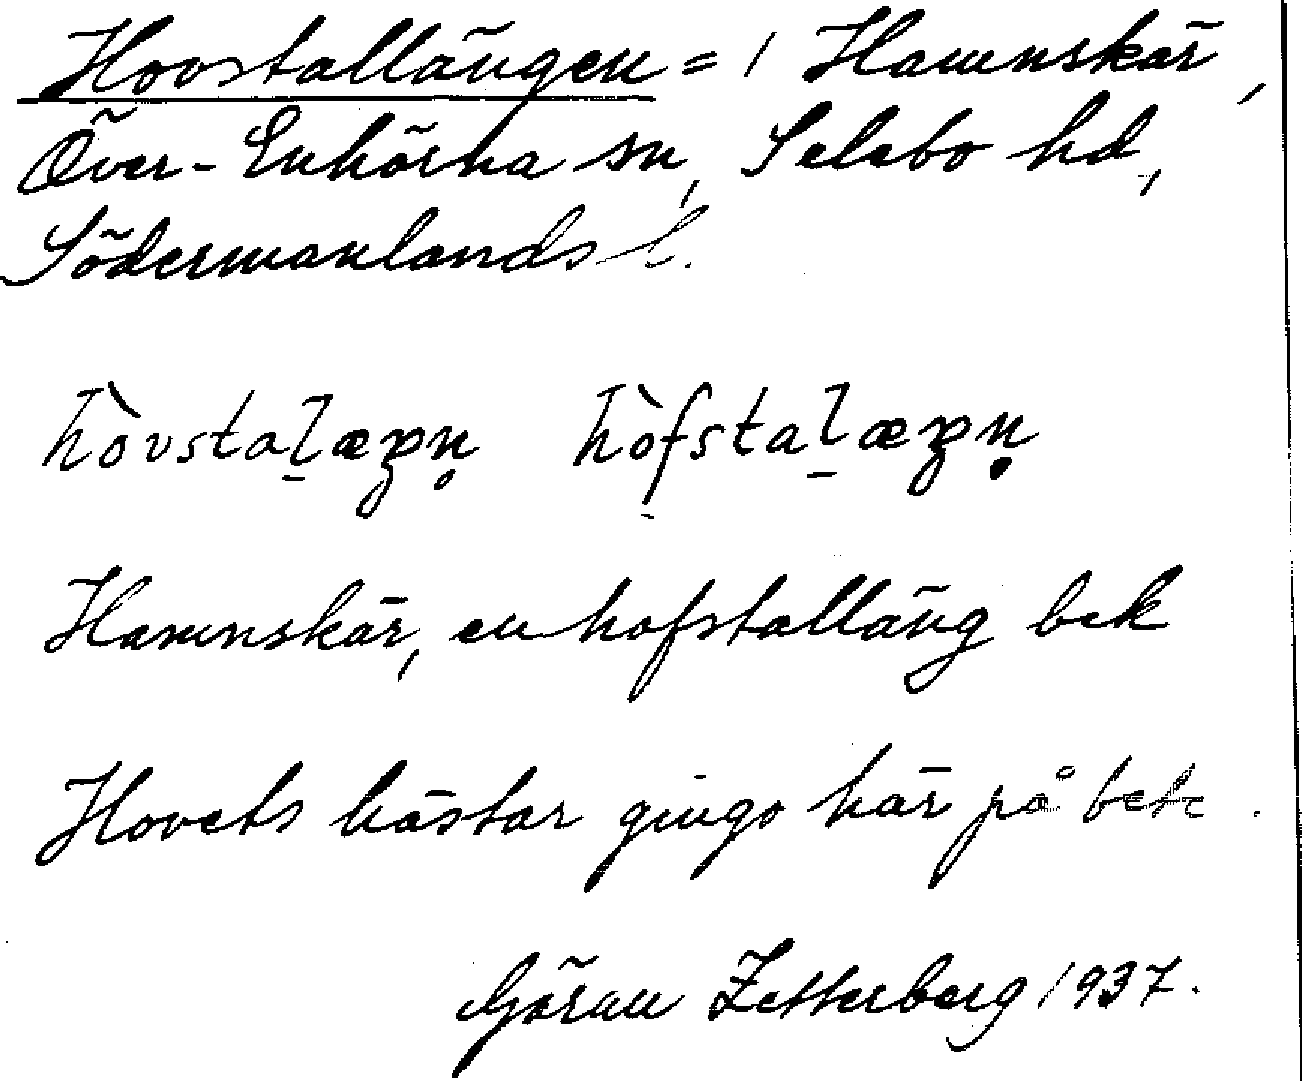 Hovstallängen = 1 Hamnskär,
Över-Enhörna sn, Selebo hd,
Södermanlands l.
hòvstaḻæŋn̥ hòfstaḻæŋn̥
Hamnskär, en hofstalläng bek
Hovets hästar gingo här på bete.
Göran Zetterberg 1937.